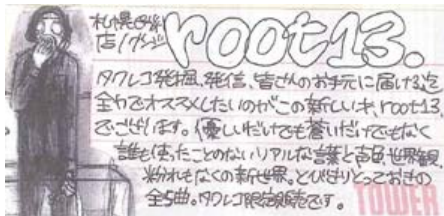 札幌
root13.
タワレコ発掘、発信、皆さんのお手元に届ける迄
全力でオススメしたいのがこの新しい才、root13.
でございます。優しいだけでも蒼いだけでもなく
誰も使ったことのないリアルな言葉と声色、世界観、
紛れもなくの新世界。とびきりとっておきの
全5曲。タワレコ限定販売です。
TOWER